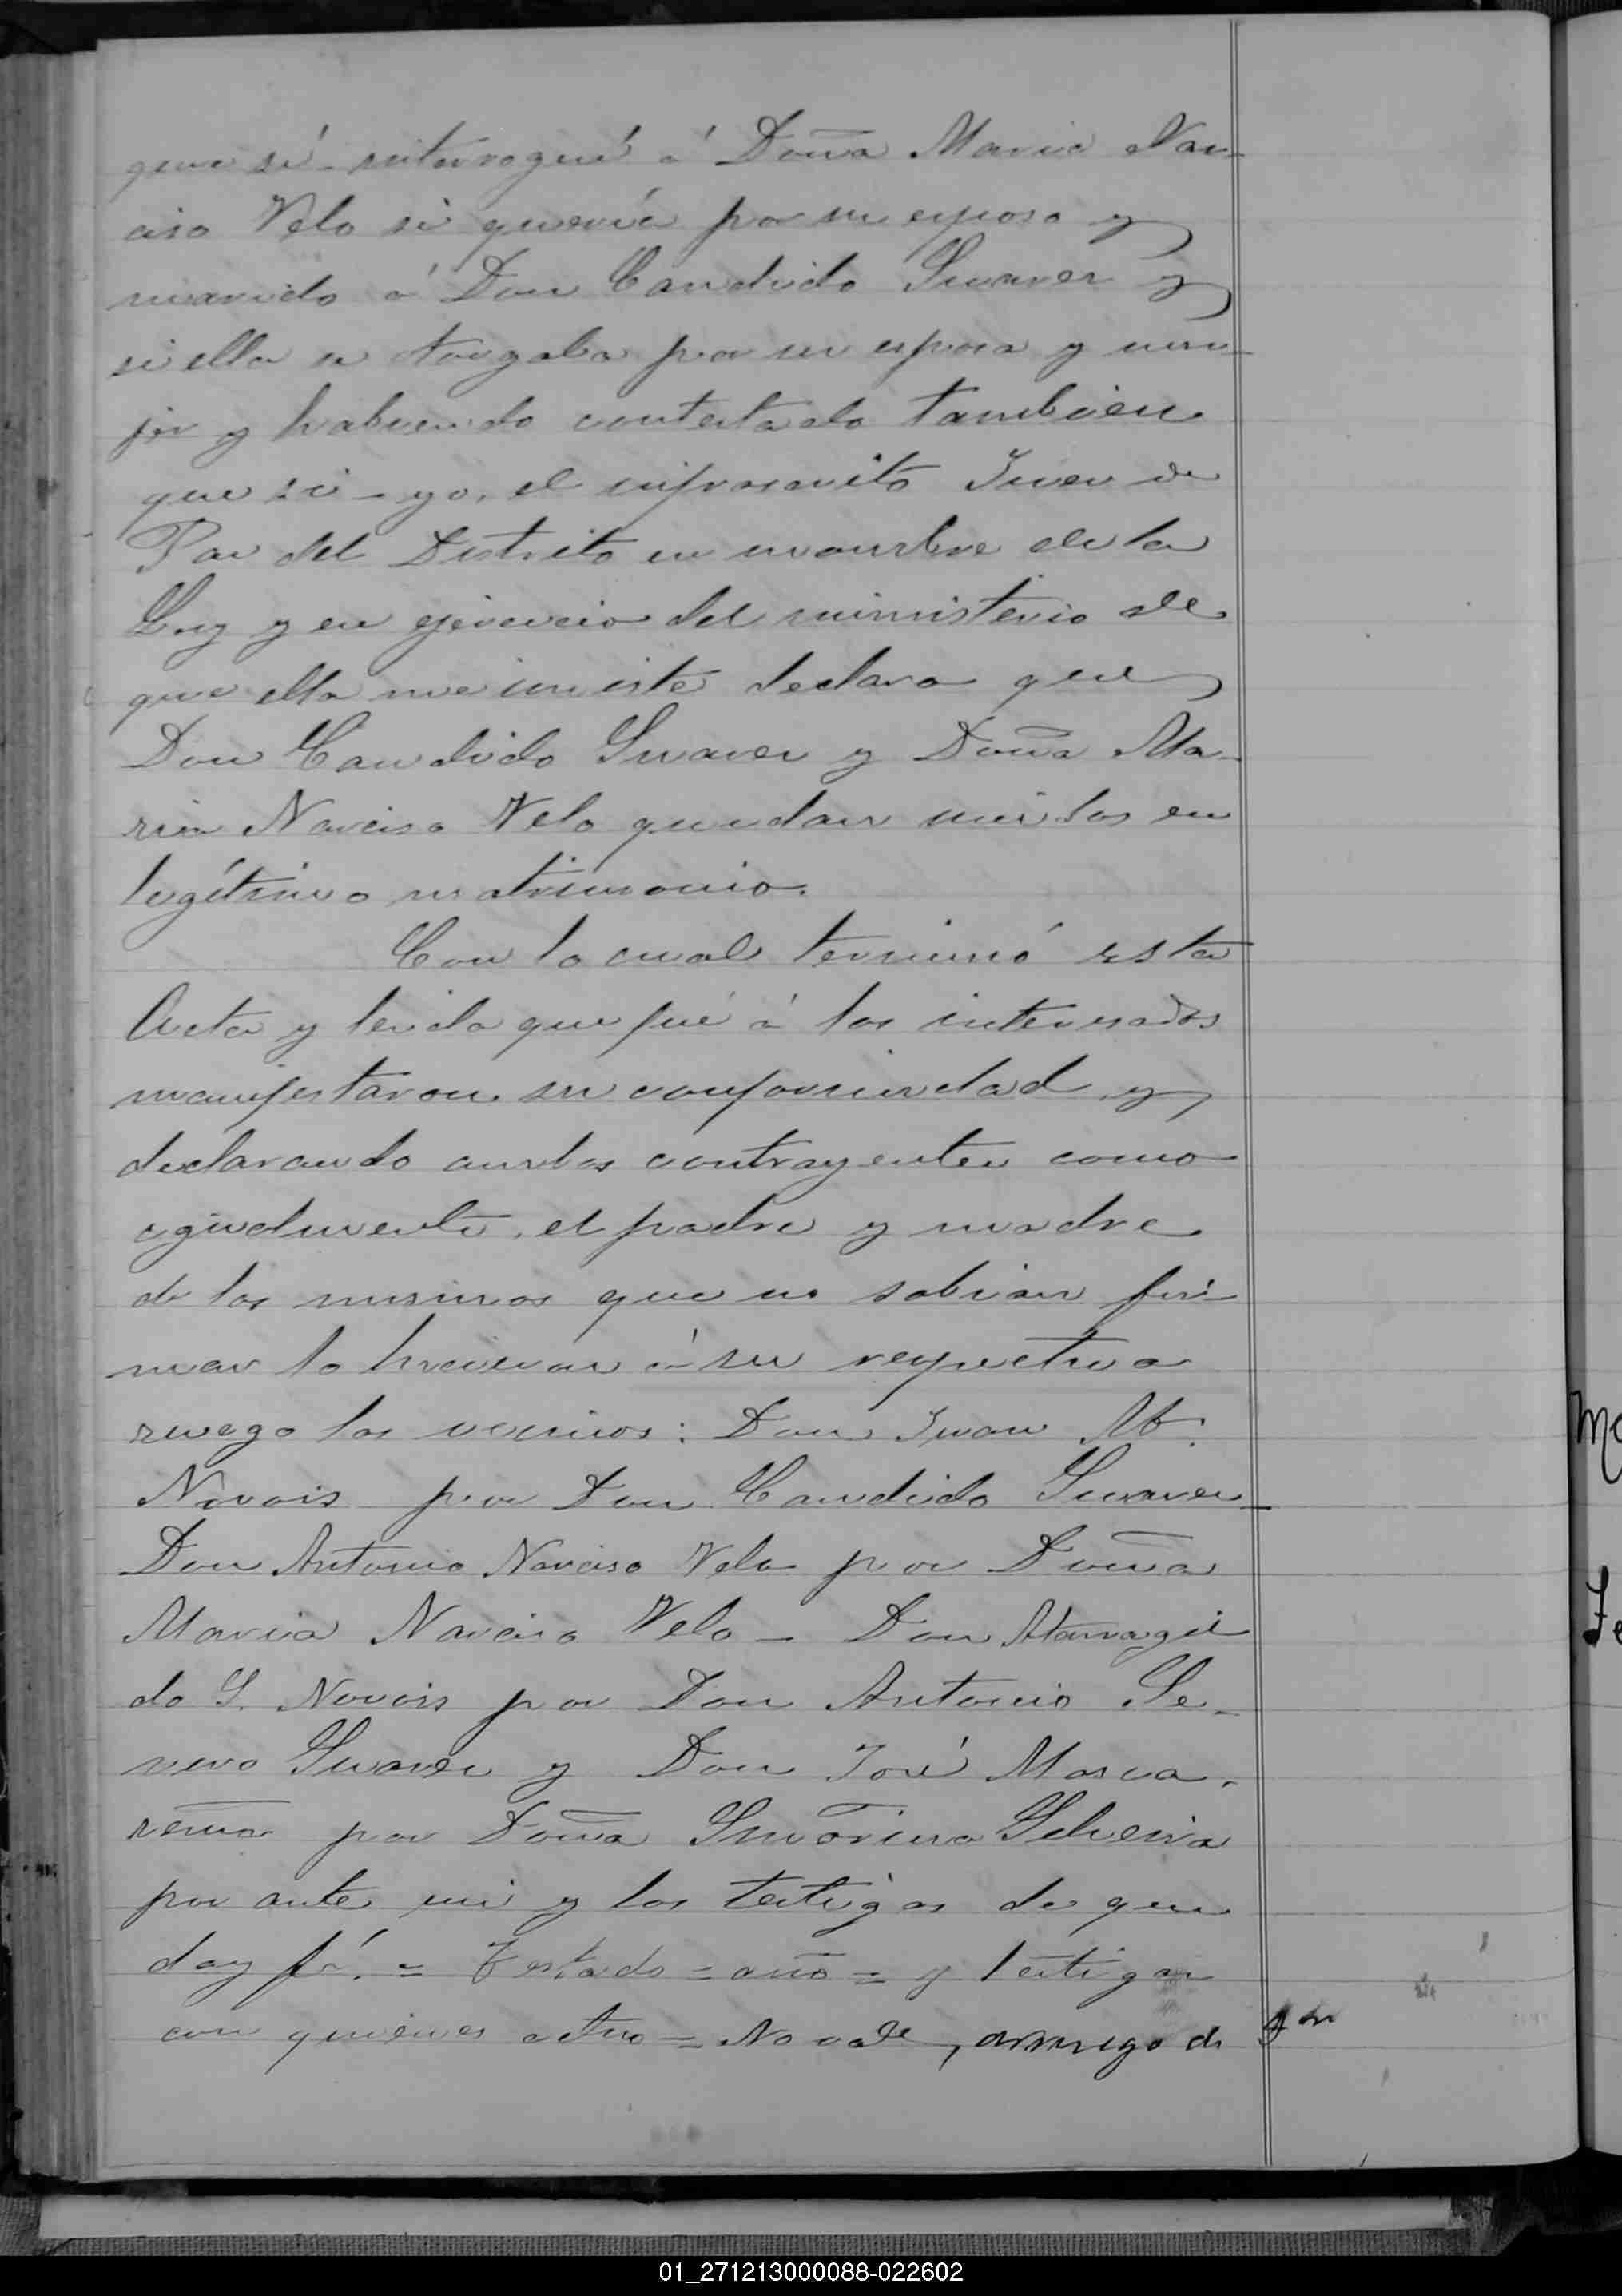 que sí - interrogué á Doña Maria Nar-
ciso Velo si queria por su esposo y
marido á Don Candido Suarez y
si ella se otorgaba por su esposa y mu-
jer y habiendo contestado tambien
que si - yo, el infrascrito Juez de
Paz del Distrito en nombre de la
Ley y en ejercicio del ministerio de
que ella me inviste declaro que
Don Candido Suarez y Doña Ma-
ria Narciso Velo quedan unidos en
legítimo matrimonio.
Con lo cual terminó esta
Acta y leida que fué á los interesados
manifestaron su conformidad y
declarando ambos contrayentes como
igualmente, el padre y madre
de los mismos que no sabian fir-
mar lo hicieron á su respectivo
ruego los vecinos: Don Juan M.
Novois por Don Candido Suarez
Don Antonio Narciso Velo por Doña
Maria Narciso Velo - Don Atanagil
do S. Novois por Don Antonio Se-
vero Suarez y Don José Masca-
reña por Doña Silveira
por ante mi y los testigos de que
doy fé. = Testado = año = y testigos
con quienes actuo = No vale, a ruego de
01_271213000088-022602